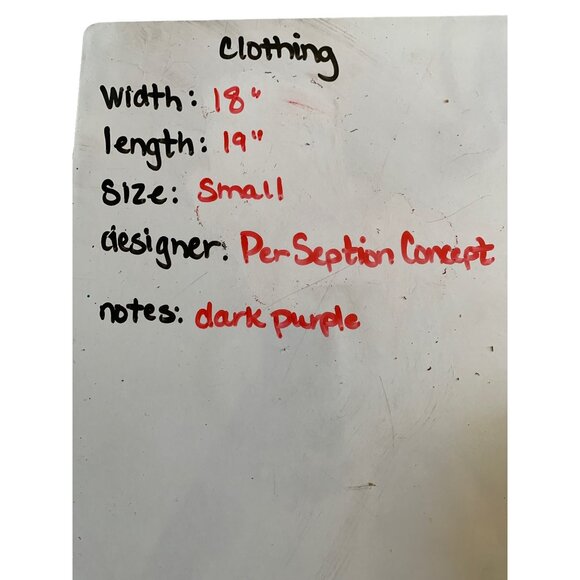 clothing
width: 18"
length: 19"
size: small
designer: Per Seption Concept
notes: dark purple